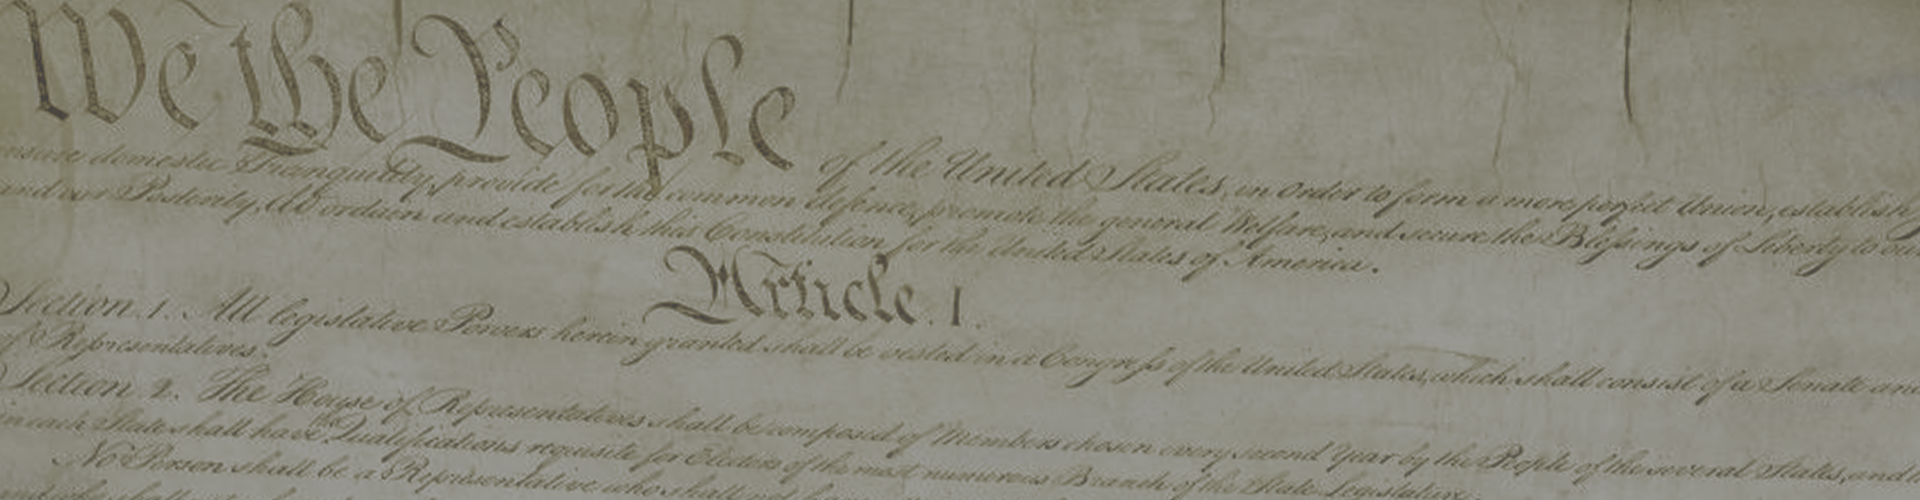 We the People of the United States, in Order to form a more perfect Union, establish
insure domestic Tranquility, provide for the common defence, promote the general Welfare, and secure the Blessings of Liberty to our
and our Posterity, do ordain and establish this Constitution for the United States of America.
Article. I.
Section. 1. All legislative Powers herein granted shall be vested in a Congress of the United States, which shall consist of a Senate and
of Representatives.
Section. 2. The House of Representatives shall be composed of Members chosen every second Year by the People of the several States, and
in each State shall have the Qualifications requisite for Electors of the most numerous Branch of the State Legislature.
No Person shall be a Representative who shall not